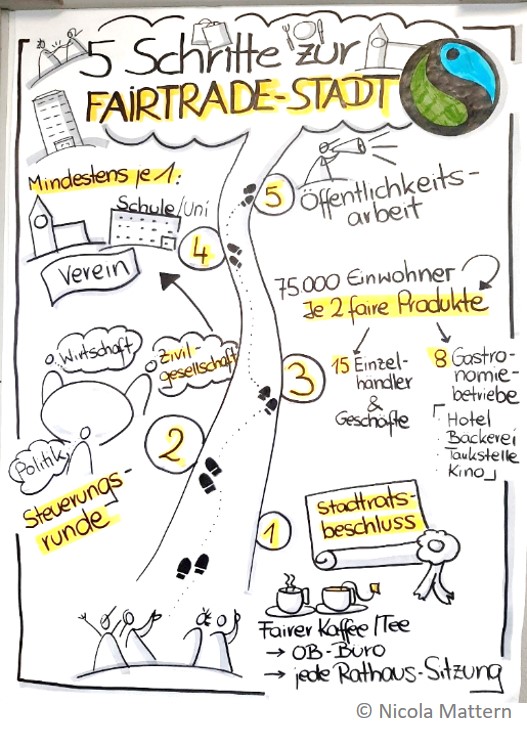 5 Schritte zur
FAIRTRADE-STADT
Mindestens je 1:
Schule/Uni
Verein
4
5
Öffentlichkeits-
arbeit
75.000 Einwohner
Je 2 faire Produkte
15 Einzel-
händler
&
Geschäfte
8 Gastro-
nomie-
betriebe
Hotel
Bäckerei
Tankstelle
Kino
3
Wirtschaft
Zivil-
gesellschaft
Politik
2
Steuerungs-
runde
1
Stadtrats-
beschluss
Fairer Kaffee/Tee
→ OB-Büro
→ jede Rathaus-Sitzung
© Nicola Mattern